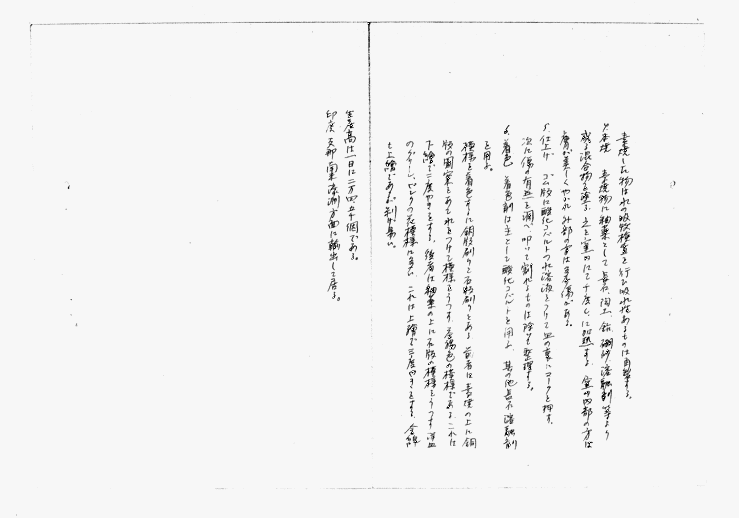 素焼した物は水の吸収検査を行ひ吸水性あるものは再製する。
4. 本焼 素焼物に釉薬として 長石 陶土 鉛 硼砂 溶融剤 等より
成る混合物を塗る。之を窯の中にて千度Cに加熱する。窯の内部の方は
膚が美しくやかれ外部の方は多少傷がある。
5. 仕上げ ゴム版に酸化コバルトの水溶液をつけて皿の裏にマークを押す。
次に傷の有無を調べ叩いて割れるものは除き整理する。
6. 着色 着色剤は主として酸化コバルトを用ふ、其の他長石 溶融剤
を用ふ。
模様を着色するに銅版刷りと石版刷りとある。前者は素焼の上に銅
版の図案をあてれをつけて模様をうつす。茶褐色の模様である。これは
下絵で二度やきをする。後者は釉薬の上に石版の模様をうつす 洋皿
のグリーン、ピンクの花模様に多い。これは上繪で三度やきをする。金線
も上繪であるが剥げ易い。
生産高は一日に二万四五千個である。
印度 支那 南米 濠洲 方面に輸出して居る。